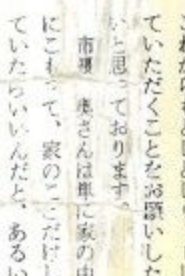 ていただくことをお願いした
いと思っております。
市
奥さんは単に家の中
にこもって、家のことだけし
ていたらいいんだと、あるい